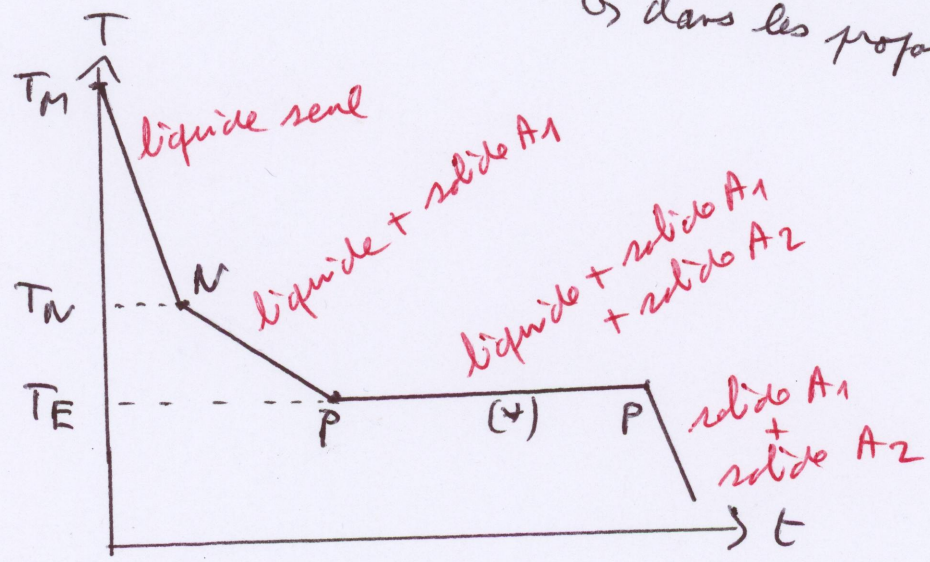 ↳ dans les propo
T
TM
liquide seul
liquide + solide A1
TN
N
liquide + solide A1
+ solide A2
TE
P
(*)
P
solide A1
+
solide A2
t